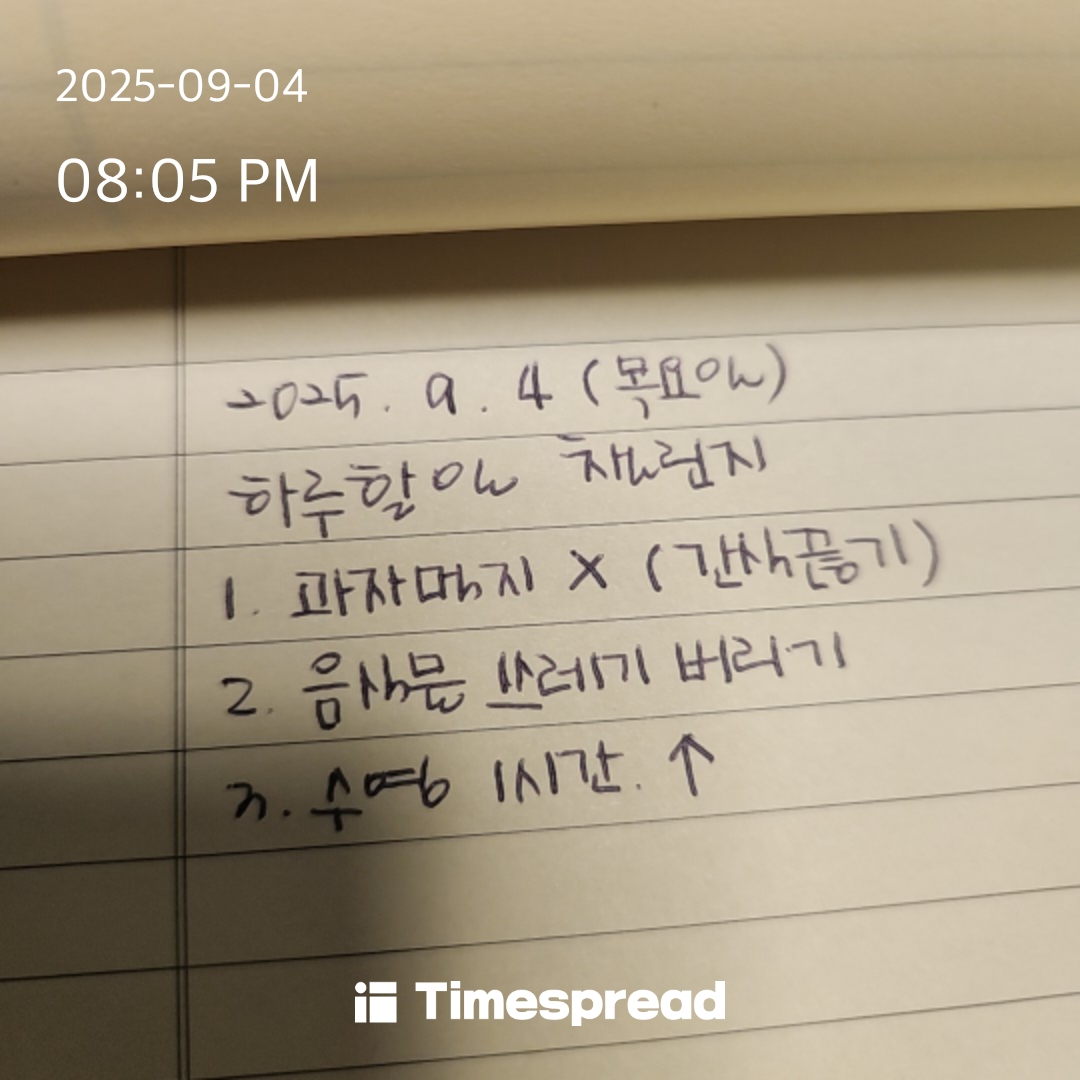 2025-09-04
08:05 PM
2025. 9. 4 (목요일)
하루할일 챌린지
1. 과자먹지 X (간식끊기)
2. 음식물 쓰레기 버리기
3. 수영 1시간. ↑
Timespread